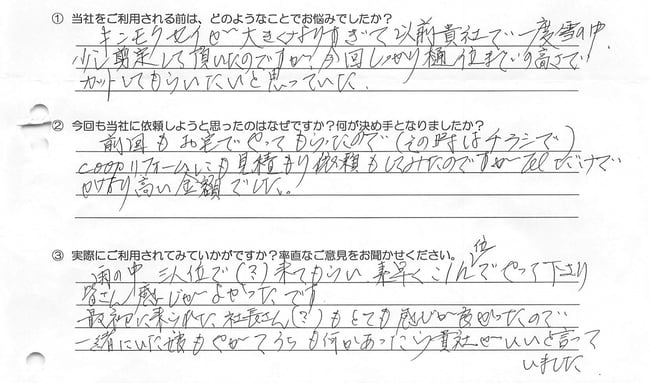 ① 当社をご利用される前は、どのようなことでお悩みでしたか?
キンモクセイが大きくなりすぎて以前貴社で一度雪の中
少し剪定して頂いたのですが、今回しっかり樋位までの高さで
カットしてもらいたいと思っていた。
② 今回も当社に依頼しようと思ったのはなぜですか?何が決め手となりましたか?
前回もお宅でやってもらったので(その時はチラシで)
COOPリフォームにも見積もり依頼もしてみたのですが Telだけで
かなり高い金額でした。
③ 実際にご利用されてみていかがですか?率直なご意見をお聞かせください。
雨の中 三人位で(?)来てもらい 素早く 位でやって下さり
皆さん感じがよかったです
最初に来られた社長さん(?)もとても感じが良かったので
一緒にいた娘もやがてうちも何かあったら貴社がいいと言って
いました